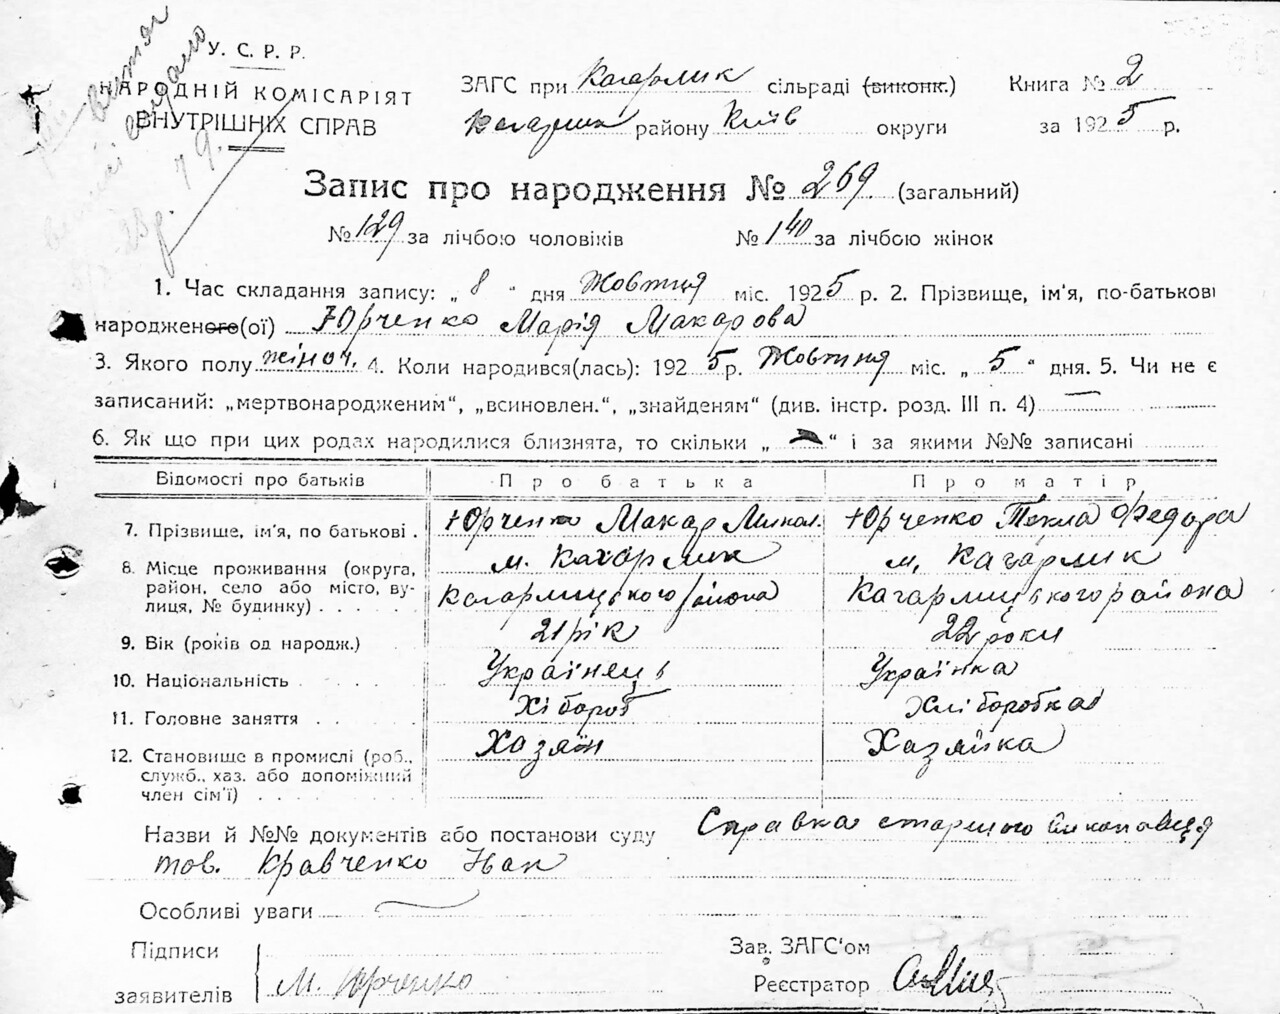 У. С. Р. Р.
НАРОДНІЙ КОМІСАРІЯТ
ВНУТРІШНІХ СПРАВ
ЗАГС при Кагарлик сільраді (виконк.) Книга № 2
району Київ округи за 1925 р.
Запис про народження № 269. (загальний)
№ 129 за лічбою чоловіків № 140 за лічбою жінок
1. Час складання запису: „ 8 “ дня Жовтня міс. 1925 р. 2. Прізвище, ім'я, по-батькові
народженого(ої) Юрченко Марія Макарова
3. Якого полу жіноч. 4. Коли народився(лась): 1925 р. Жовтня міс. „ 5 “ дня. 5. Чи не є
записаний: „мертвонародженим“, „всиновлен.“, „знайденям“ (див. інстр. розд. III п. 4)
6. Як що при цих родах народилися близнята, то скільки „ “ і за якими №№ записані
Відомості про батьків Про батька Про матір
7. Прізвище, ім'я, по батькові . Юрченко Макар Микол. Юрченко Текла Федора
8. Місце проживання (округа, район, село або місто, вулиця, № будинку) . . . . . м. Кахарлик м. Кагарлик
Кагарлицького района Кагарлицького района
9. Вік (років од народж.) 21 рік 22 роки
10. Національність . . . . . Українець Українка
11. Головне заняття . . . . Хібороб Хліборобка
12. Становище в промислі (роб., служб., хаз. або допоміжний член сім'ї) . . . . . . Хазяїн Хазяйка
Назви й №№ документів або постанови суду Справка старшого виконавця
тов. Кравченко Іван
Особливі уваги
Підписи
заявителів М. Юрченко
Зав. ЗАГС'ом
Реєстратор